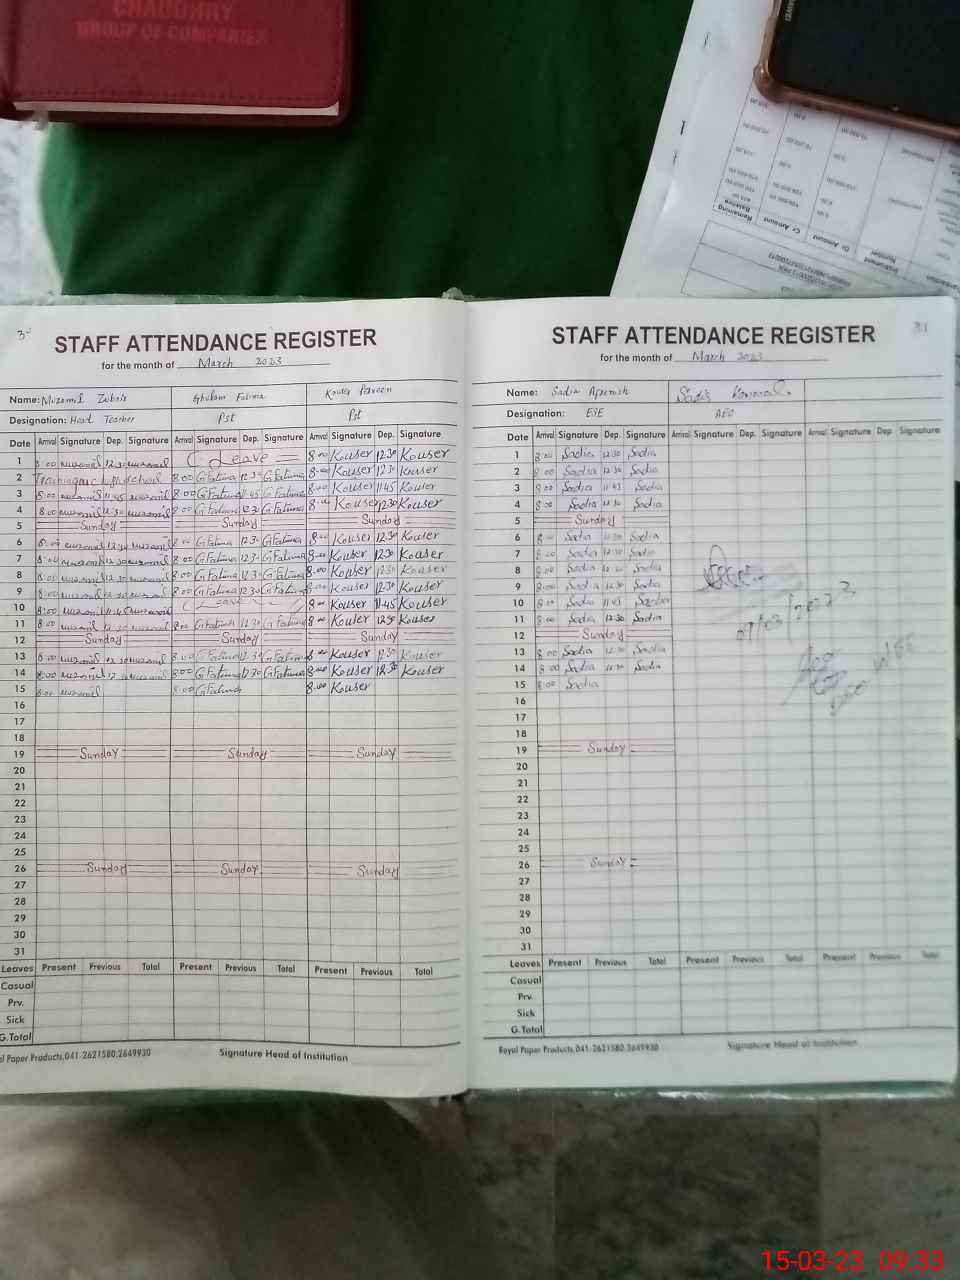 CHAUDHRY
GROUP OF COMPANIES
Remaining Balance
Cr Amount
Dr Amount
Instrument Number
STAFF ATTENDANCE REGISTER
for the month of March 2023
Name: Muzamil Zubair Ghulam Fatima Kouser Parveen
Designation: Head Teacher Pst Pst
Date Arrival Signature Dep. Signature Arrival Signature Dep. Signature Arrival Signature Dep. Signature
1 8:00 muzamil 12:30 muzamil C Leave 8:00 Kouser 12:30 Kouser
2 8:00 G.Fatima 12:30 G.Fatima 8:00 Kouser 12:30 Kouser
3 8:00 muzamil 11:45 muzamil 8:00 G.Fatima 11:45 G.Fatima 8:00 Kouser 11:45 Kouser
4 8:00 muzamil 12:30 muzamil 8:00 G.Fatima 12:30 G.Fatima 8:00 Kouser 12:30 Kouser
5 Sunday Sunday Sunday
6 8:00 muzamil 12:30 muzamil 8:00 G.Fatima 12:30 G.Fatima 8:00 Kouser 12:30 Kouser
7 8:00 muzamil 12:30 muzamil 8:00 G.Fatima 12:30 G.Fatima 8:00 Kouser 12:30 Kouser
8 8:00 muzamil 12:30 muzamil 8:00 G.Fatima 12:30 G.Fatima 8:00 Kouser 12:30 Kouser
9 8:00 muzamil 12:30 muzamil 8:00 G.Fatima 12:30 G.Fatima 8:00 Kouser 12:30 Kouser
10 8:00 muzamil 11:45 muzamil C Leave 8:00 Kouser 11:45 Kouser
11 8:00 muzamil 12:30 muzamil 8:00 G.Fatima 12:30 G.Fatima 8:00 Kouser 12:30 Kouser
12 Sunday Sunday Sunday
13 8:00 muzamil 12:30 muzamil 8:00 G.Fatima 12:30 G.Fatima 8:00 Kouser 12:30 Kouser
14 8:00 muzamil 12:30 muzamil 8:00 G.Fatima 12:30 G.Fatima 8:00 Kouser 12:30 Kouser
15 8:00 muzamil 8:00 G.Fatima 8:00 Kouser
16
17
18
19 Sunday Sunday Sunday
20
21
22
23
24
25
26 Sunday Sunday Sunday
27
28
29
30
31
Leaves Present Previous Total Present Previous Total Present Previous Total
Casual
Prv.
Sick
G.Total
al Paper Products,041-2621580,2649930 Signature Head of Institution
31
STAFF ATTENDANCE REGISTER
for the month of March 2023
Name: Sadia
Designation: ESE AEO
Date Arrival Signature Dep. Signature Arrival Signature Dep. Signature Arrival Signature Dep. Signature
1 8:00 Sadia 12:30 Sadia
2 8:00 Sadia 12:30 Sadia
3 8:00 Sadia 11:45 Sadia
4 8:00 Sadia 12:30 Sadia
5 Sunday
6 8:00 Sadia 12:30 Sadia
7 8:00 Sadia 12:30 Sadia
8 8:00 Sadia 12:30 Sadia
9 8:00 Sadia 12:30 Sadia
10 8:00 Sadia 11:45 Sadia
11 8:00 Sadia 12:30 Sadia
12 Sunday
13 8:00 Sadia 12:30 Sadia
14 8:00 Sadia 12:30 Sadia
15 8:00 Sadia
07/03/2023
16
17
18
19 Sunday
20
21
22
23
24
25
26 Sunday
27
28
29
30
31
Leaves Present Previous Total Present Previous Total Present Previous Total
Casual
Prv.
Sick
G.Total
Royal Paper Products,041-2621580,2649930 Signature Head of Institution
15-03-23 09:33